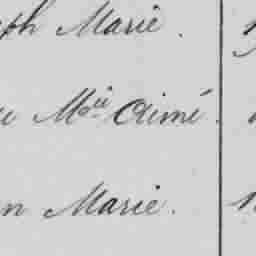 ph Marie.
Mie Aimé.
n Marie.